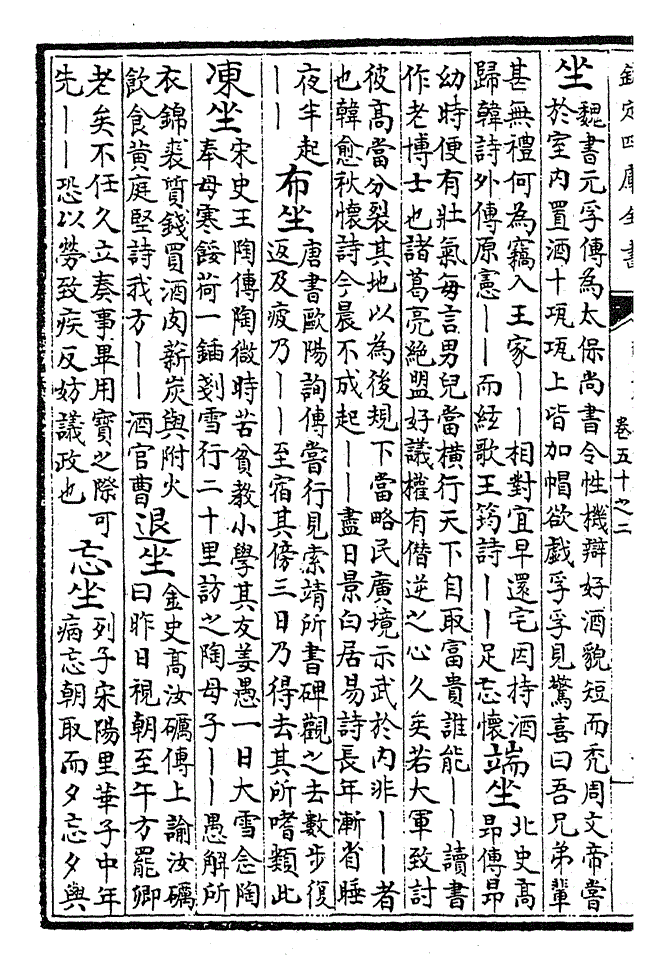 欽定四庫全書
卷五十之二
坐
魏書元孚傳為太保尚書令性機辯好酒貌短而禿周文帝嘗
於室内置酒十瓨瓨上皆加帽欲戲孚孚見驚喜曰吾兄弟輩
甚無禮何為竊入王家丨丨相對宜早還宅因持酒
歸韓詩外傳原憲丨丨而絃歌王筠詩丨丨足忘懷
端坐
北史高
昂傳昂
幼時便有壯氣每言男兒當橫行天下自取富貴誰能丨丨讀書
作老博士也諸葛亮絶盟好議權有僭逆之心久矣若大軍致討
彼高當分裂其地以為後規下當略民廣境示武於内非丨丨者
也韓愈秋懷詩今晨不成起丨丨盡日景白居易詩長年漸省睡
夜半起
丨丨
布坐
唐書歐陽詢傳嘗行見索靖所書碑觀之去數步復
返及疲乃丨丨至宿其傍三日乃得去其所嗜類此
凍坐
宋史王陶傳陶微時苦貧教小學其友姜愚一日大雪念陶
奉母寒餒荷一鍤剗雪行二十里訪之陶母子丨丨愚解所
衣錦裘質錢買酒肉薪炭與附火
飲食黄庭堅詩我方丨丨酒官曹
退坐
金史高汝礪傳上諭汝礪
曰昨日視朝至午方罷卿
老矣不任久立奏事畢用寶之際可
先丨丨恐以勞致疾反妨議政也
忘坐
列子宋陽里華子中年
病忘朝取而夕忘夕與